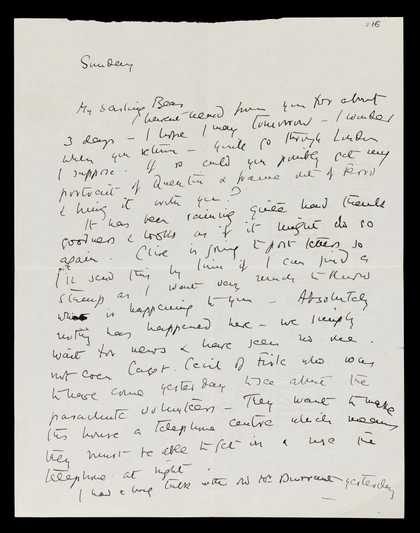 16
Sunday
My darling Bear
I haven't heard from you for about
3 days – I hope I may tomorrow – I wonder
when you return – you'll go through London
I suppose. If so could you possibly get my
portrait of Quentin & frame out of
& bring it with you?
It has been raining quite hard thank
goodness & looks as if it might do so
again. Clive is going to post letters so
I'll send this by him if I can find a
stamp as I want very much to know
what is happening to you – Absolutely
nothing has happened here – we simply
wait for news & have seen no one.
not even Capt. Cecil who was
to have come yesterday to see about the
parachute volunteers – They want to make
this house a telephone centre which means
they must be able to get in & use the
telephone at night.
I had a long talk with old Mr Durrant yesterday